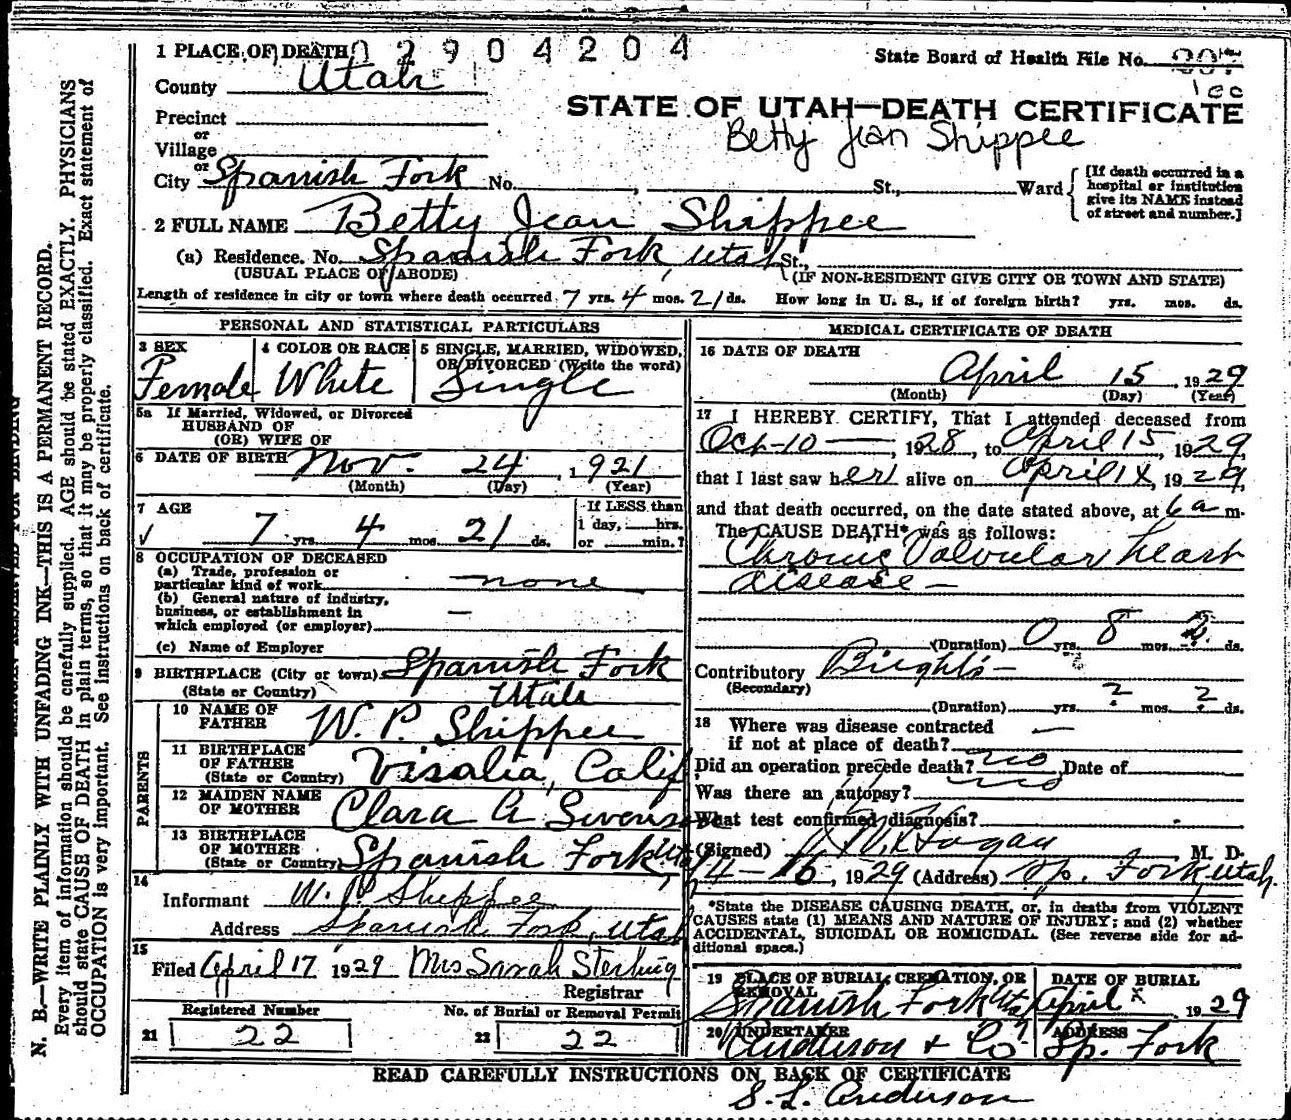 1 PLACE OF DEATH 02904204
State Board of Health File No. 207
100
County Utah
STATE OF UTAH—DEATH CERTIFICATE
Betty Jean Shippee
Precinct
or
Village
or
City Spanish Fork No. , St., Ward
[If death occurred in a hospital or institution give its NAME instead of street and number.]
2 FULL NAME Betty Jean Shippee
(a) Residence. No. Spanish Fork, Utah St.,
(USUAL PLACE OF ABODE) (IF NON-RESIDENT GIVE CITY OR TOWN AND STATE)
Length of residence in city or town where death occurred 7 yrs. 4 mos. 21 ds. How long in U. S., if of foreign birth? yrs. mos. ds.
PERSONAL AND STATISTICAL PARTICULARS
3 SEX Female
4 COLOR OR RACE White
5 SINGLE, MARRIED, WIDOWED, OR DIVORCED (Write the word) Single
5a If Married, Widowed, or Divorced
HUSBAND OF
(OR) WIFE OF
6 DATE OF BIRTH Nov. 24, 1921
(Month) (Day) (Year)
7 AGE
7 yrs. 4 mos. 21 ds.
If LESS than
1 day, hrs.
or min.?
8 OCCUPATION OF DECEASED
(a) Trade, profession or
particular kind of work none
(b) General nature of industry,
business, or establishment in
which employed (or employer) —
(c) Name of Employer
9 BIRTHPLACE (City or town) Spanish Fork
(State or Country) Utah
PARENTS
10 NAME OF FATHER W. P. Shippee
11 BIRTHPLACE OF FATHER (State or Country) Visalia, Calif
12 MAIDEN NAME OF MOTHER Clara A
13 BIRTHPLACE OF MOTHER (State or Country) Spanish Fork Utah
14
Informant W. P. Shippee
Address Spanish Fork, Utah
15
Filed April 17 1929 Mrs Sarah Sterling
Registrar
Registered Number No. of Burial or Removal Permit
21 22 22 22
MEDICAL CERTIFICATE OF DEATH
16 DATE OF DEATH
April 15, 1929
(Month) (Day) (Year)
17 I HEREBY CERTIFY, That I attended deceased from
Oct-10 —, 1928, to April 15, 1929,
that I last saw her alive on April 1X, 1929,
and that death occurred, on the date stated above, at 6 a m.
The CAUSE DEATH* was as follows:
Chronic Valvular heart
disease —
(Duration) 0 yrs. 8 mos. ds.
Contributory Brights —
(Secondary)
(Duration) yrs. ? mos. ? ds.
18 Where was disease contracted
if not at place of death? —
Did an operation precede death? no Date of
Was there an autopsy? no
What test confirmed diagnosis?
(Signed) Hagan M. D.
4-16, 1929 (Address) Sp. Fork, Utah.
*State the DISEASE CAUSING DEATH, or, in deaths from VIOLENT
CAUSES state (1) MEANS AND NATURE OF INJURY; and (2) whether
ACCIDENTAL, SUICIDAL OR HOMICIDAL. (See reverse side for ad-
ditional space.)
19 PLACE OF BURIAL, CREMATION, OR REMOVAL DATE OF BURIAL
Spanish Fork Utah April X 1929
20 UNDERTAKER ADDRESS
Anderson & Co Sp. Fork
READ CAREFULLY INSTRUCTIONS ON BACK OF CERTIFICATE
S. L. Anderson
N. B.—WRITE PLAINLY WITH UNFADING INK—THIS IS A PERMANENT RECORD.
Every item of information should be carefully supplied. AGE should be stated EXACTLY. PHYSICIANS
should state CAUSE OF DEATH in plain terms, so that it may be properly classified. Exact statement of
OCCUPATION is very important. See instructions on back of certificate.